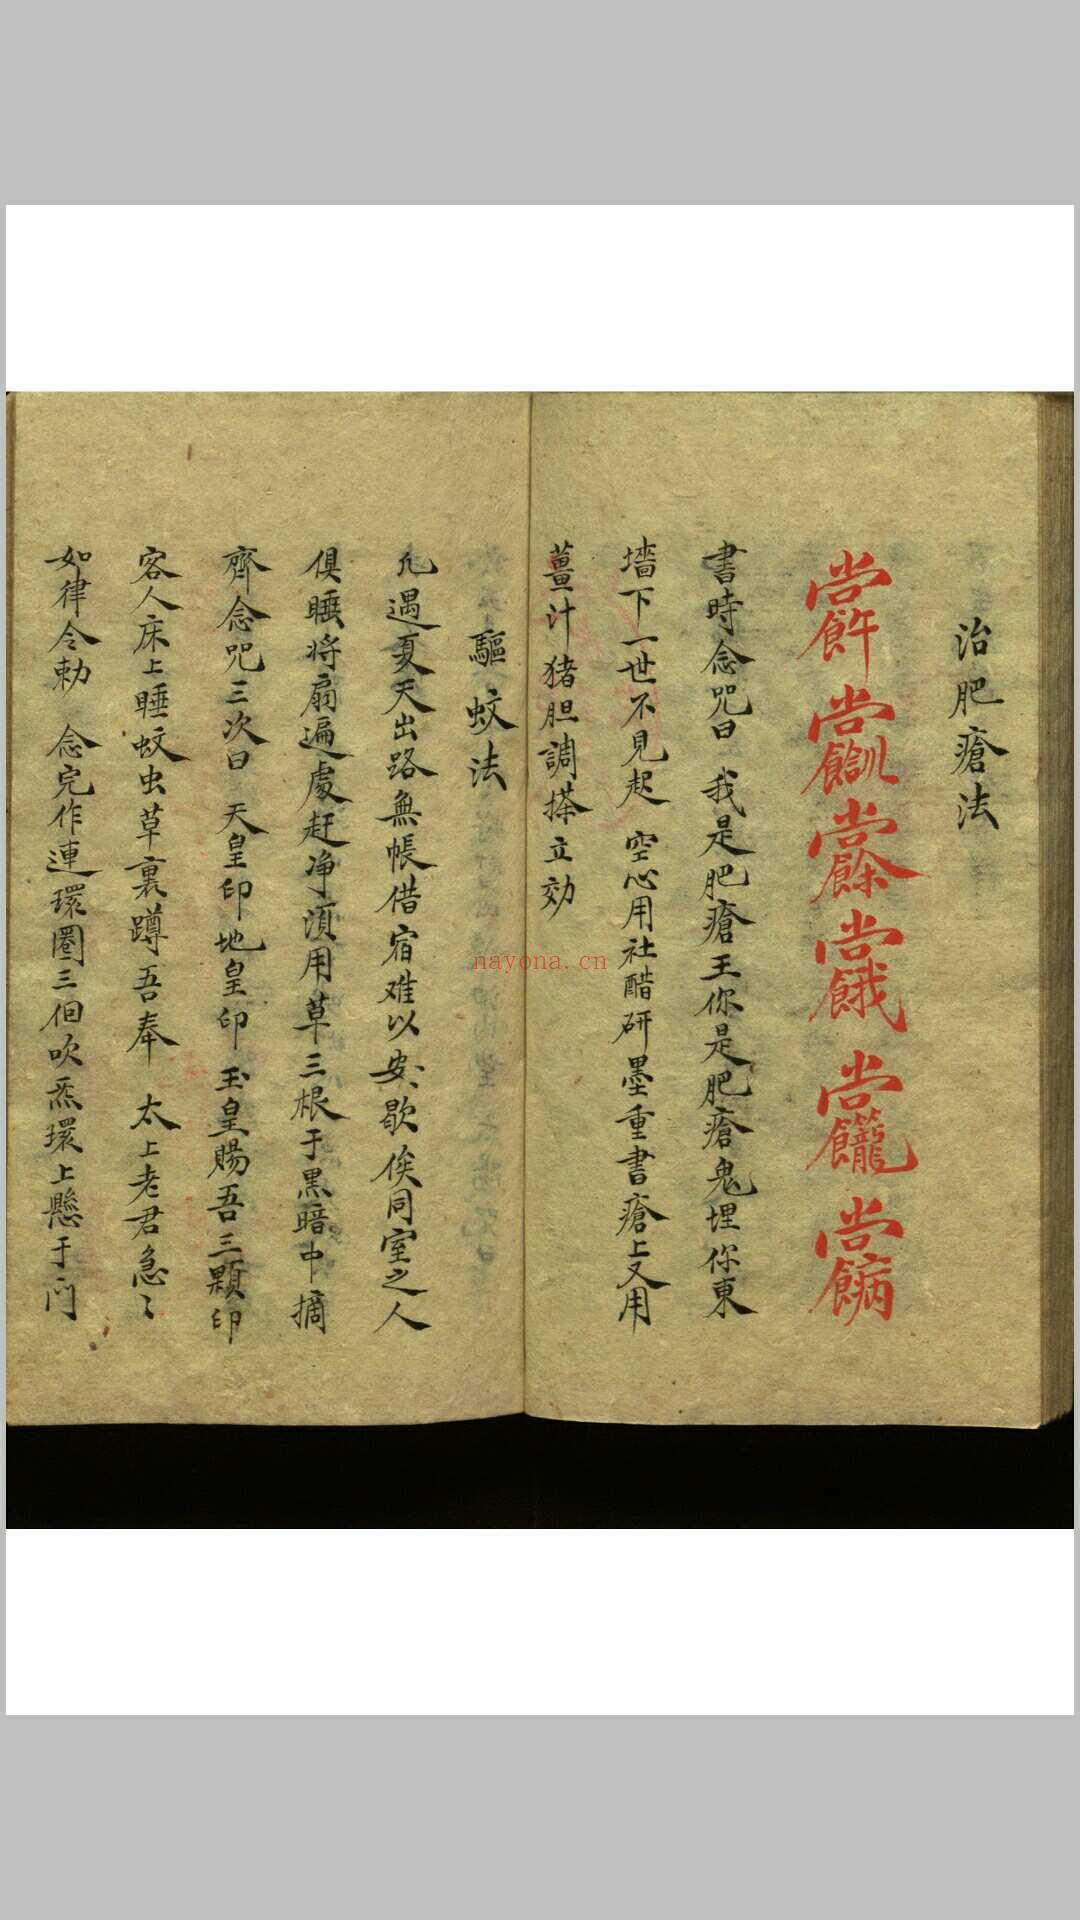 治肥瘡法
書時念咒曰 我是肥瘡王你是肥瘡鬼埋你東
墻下一世不見起 空心用社醋研墨重書瘡上又用
薑汁 猪胆調搽立効
驅蚊法
凢遇夏天出路無帳借宿难以安歇俟同室之人
俱睡将扇遍處赶净須用草三根于黒暗中摘
齊念咒三次曰 天皇印地皇印 玉皇賜吾三顆印
客人床上睡蚊虫草裏蹲吾奉 太上老君急〻
如律令勅 念完作連環圈三個吹炁環上懸于门
nayona.cn